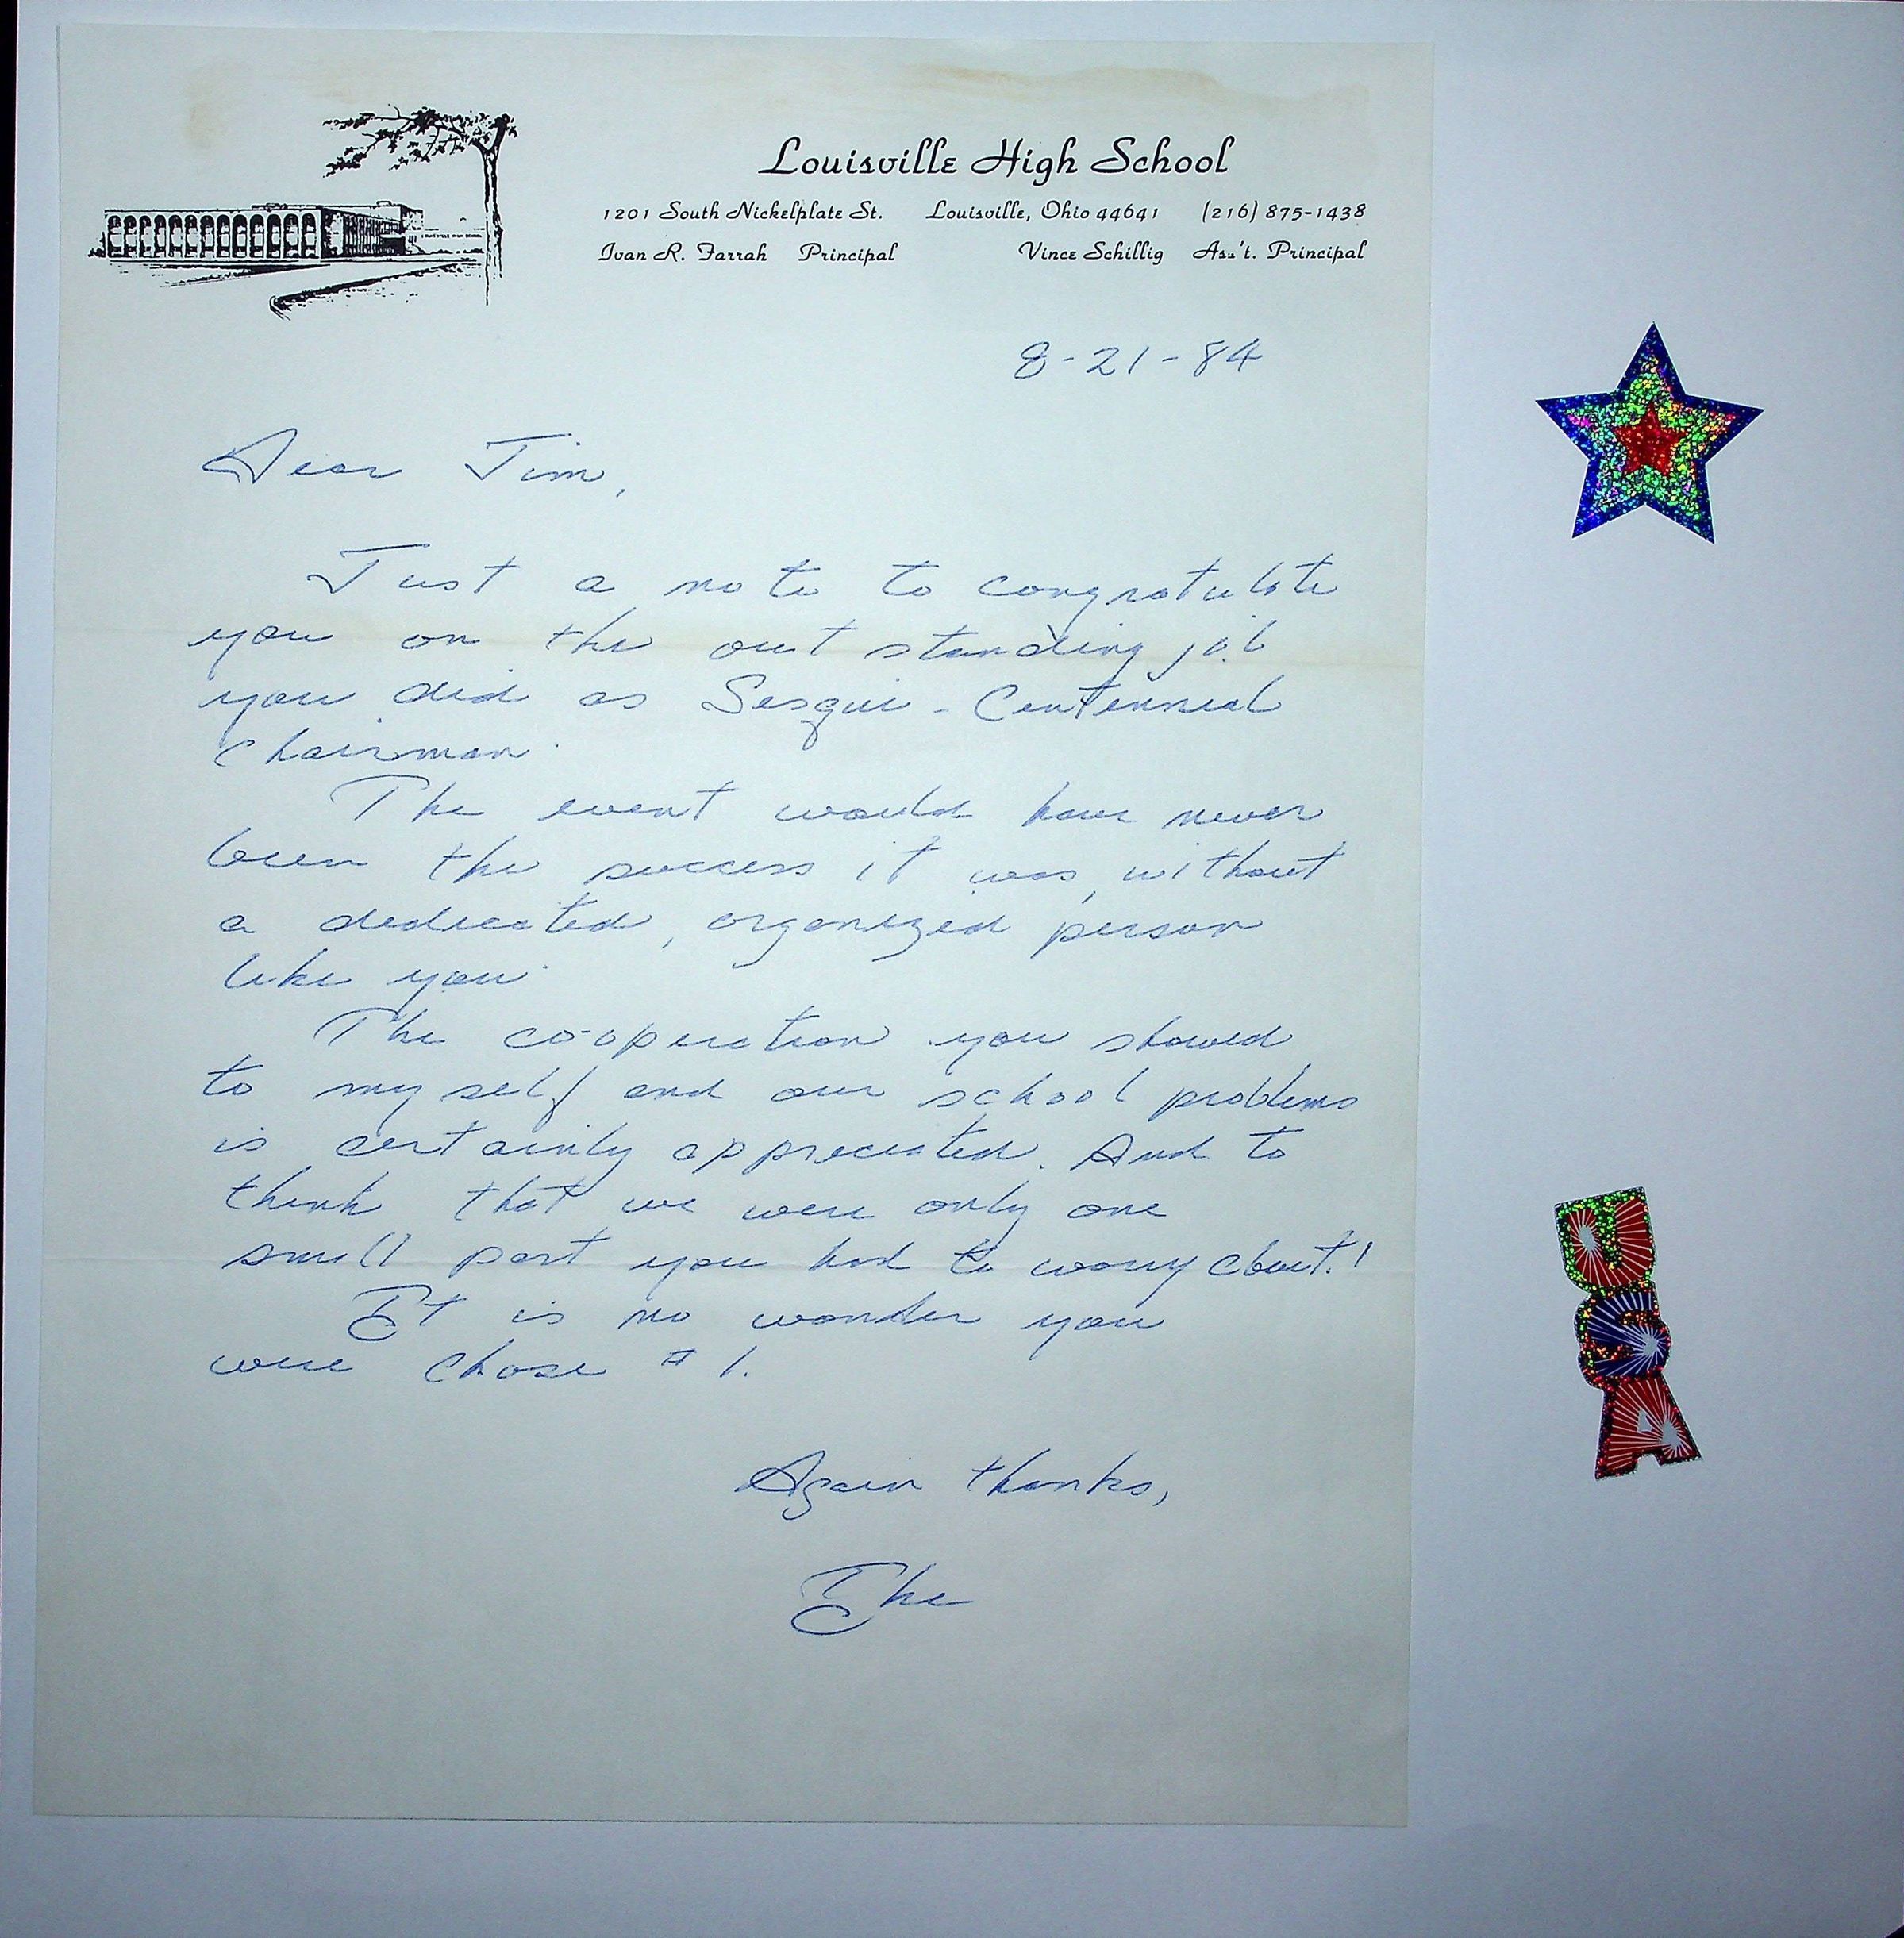 Louisville High School
1201 South Nickelplate St. Louisville, Ohio 44641 (216) 875-1438
Ivan R. Farrah Principal Vince Schillig Ass't. Principal
8-21-84
Dear Jim,
Just a note to congratulate
you on the outstanding job
you did as Sesqui-Centennial
Chairman.
The event would have never
been the success it was, without
a dedicated, organized person
like you.
The co-operation you showed
to myself and our school problems
is certainly appreciated. And to
think that we were only one
small part you had to worry about!
It is no wonder you
were chose #1.
Again thanks,
Ike
USA